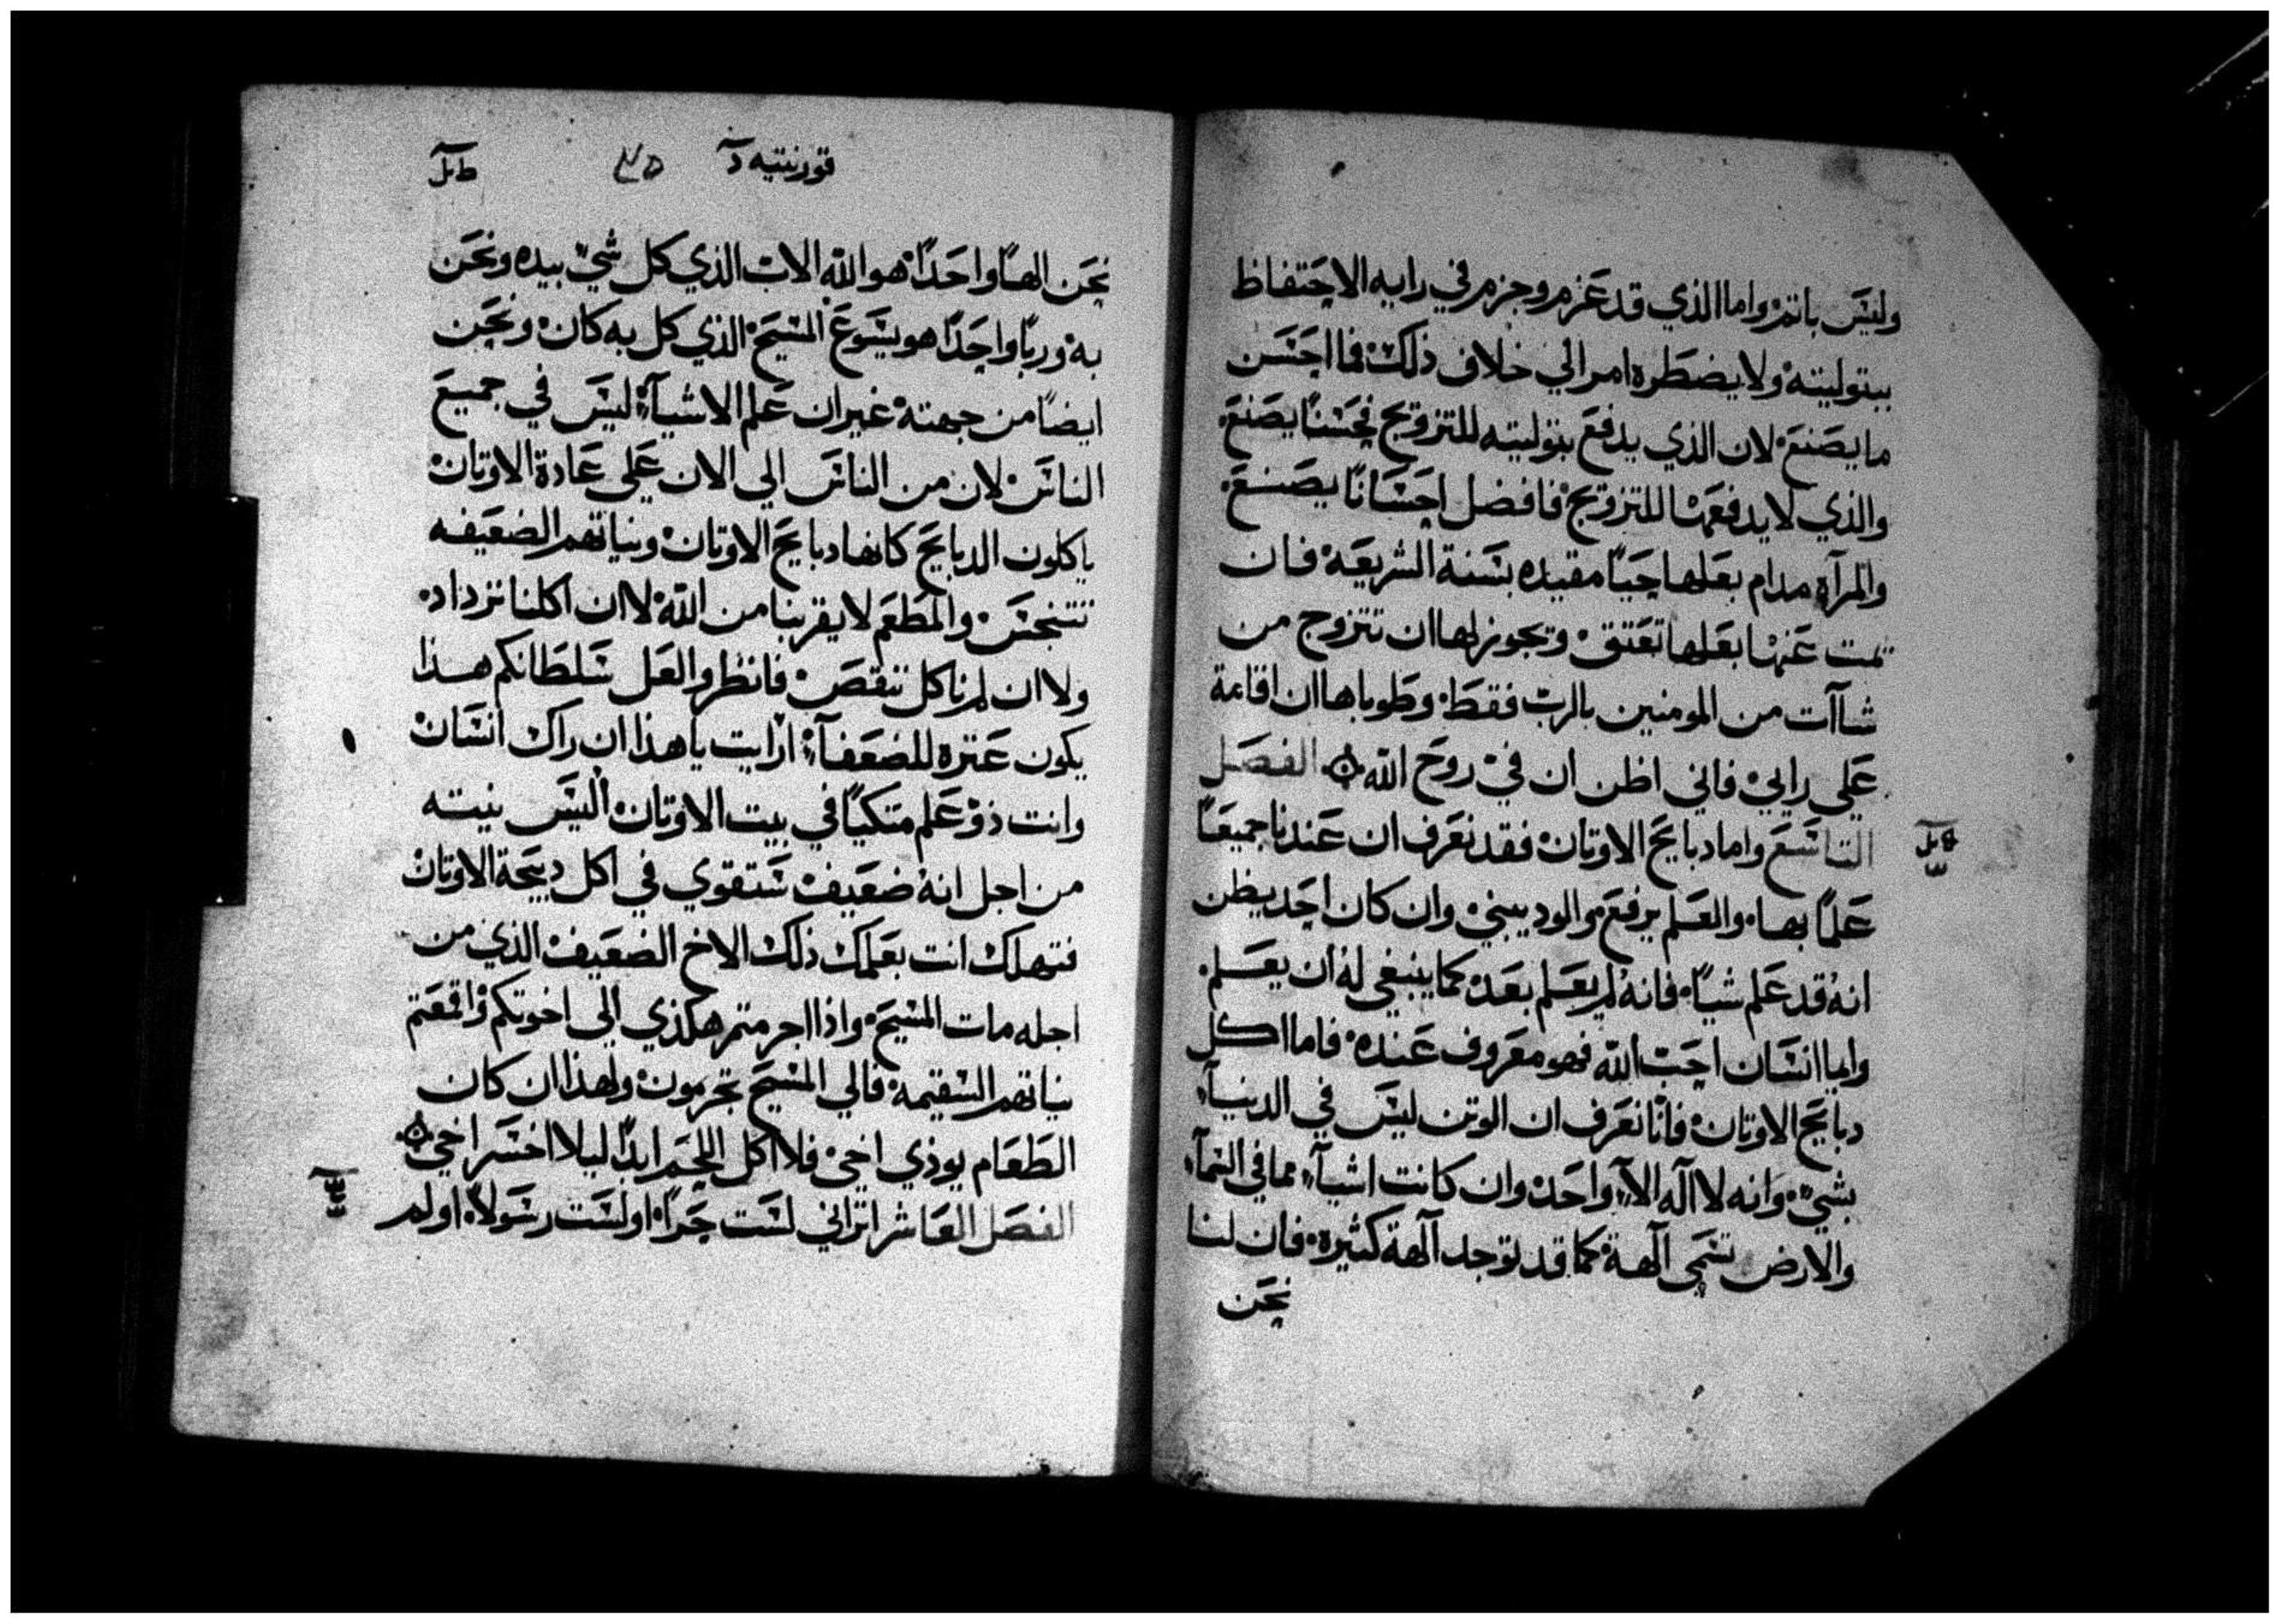 وليس باثم واما الذي قد عزم وجزم في رايه الاحتفاظ
ببتوليته ولا يضطره امر الي خلاف ذلك فما احسن
ما يصنع لان الذي يدفع بتوليته للتزويج فحسنًا يصنع
والذي لا يدفعها للتزويج فافضل احسانًا يصنع
والمرآه مدام بعلها حيًا مقيده بسنة الشريعه فان
تمت عنها بعلها تعتق ويجوز لها ان تتزوج من
شاآت من المومنين بالرب فقط وطوباها ان اقامة
علي رايي فاني اظن ان في روح الله الفصل
التاسع واما دبايح الاوتان فقد نعرف ان عندنا جميعًا
علمًا بها والعلم يرفع والود يبني وان كان احد يظن
انه قد علم شيًا فانه لم يعلم بعد كما ينبغي له ان يعلم
وايما انسان احب الله فهو معروف عنده فاما اكل
دبايح الاوتان فانا نعرف ان الوتن ليس في الدنيا
بشي وانه لا اله الا واحد وان كانت اشيآء مما في السمآء
والارض تسمى آلهة كما قد توجد آلهة كثيرة فان لنا
نحن
قورنتيه
نحن الهًا واحدًا هو الله الاب الذي كل شي بيده ونحن
به وربًا واحدًا هو يسوع المسيح الذي كل به كان ونحن
ايضًا من جهته غير ان علم الاشيآء ليس في جميع
الناس لان من الناس الي الان علي عادة الاوتان
ياكلون الدبايح كانها دبايح الاوتان ونياتهم الضعيفه
تتنجس والمطعم لا يقربنا من الله لا ان اكلنا نزداد
ولا ان لم ناكل ننقص فانظروا لعل سلطانكم هذا
يكون عترة للضعفآء ارايت يا هذا ان راك انسان
وانت ذو علم متكيًا في بيت الاوتان اليس نيته
من اجل انه ضعيف ستقوي في اكل دبيحة الاوتان
فتهلك انت بعلمك ذلك الاخ الضعيف الذي من
اجله مات المسيح واذا اجرمتم هكذي الى اخوتكم واقمعتم
نياتهم السقيمه فالي المسيح تجرمون ولهذا ان كان
الطعام يوذي اخي فلا اكل اللحم ابدًا ليلا اخسر اخي
الفصل العاشر اتراني لست حرًا او لست رسولًا اولم